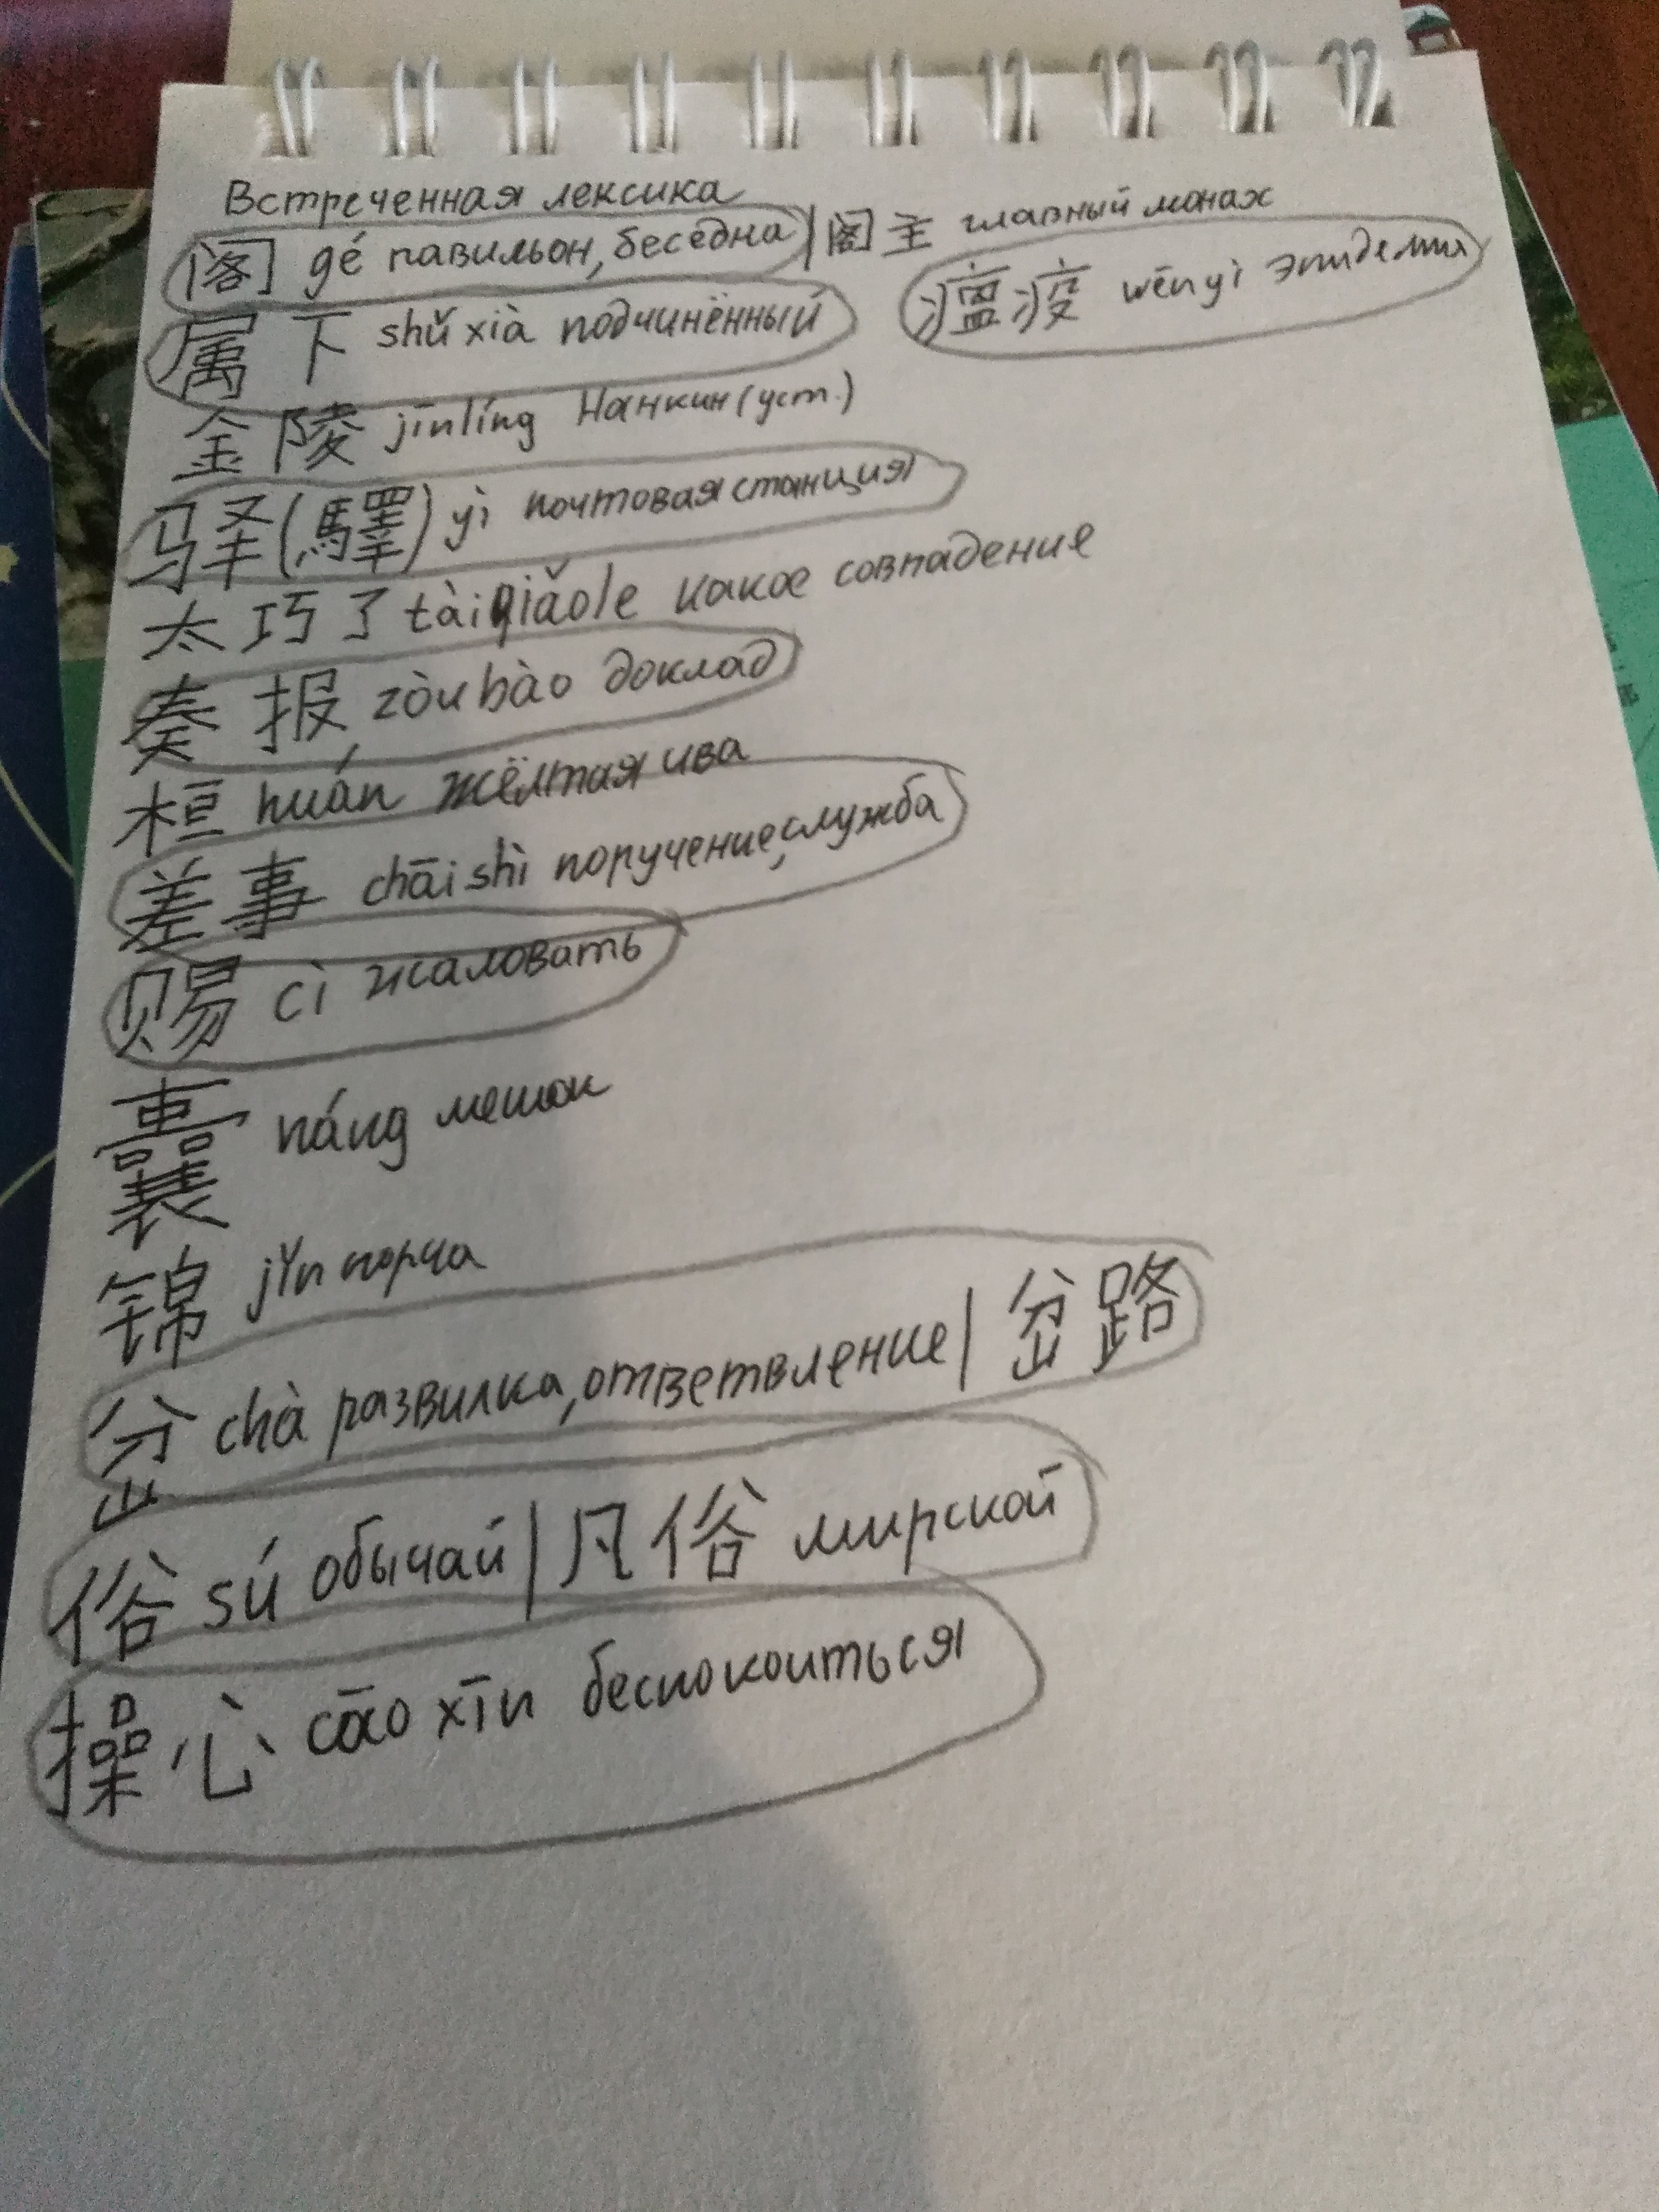 Встреченная лексика
阁 gé павильон, беседка | 阁主 главный монах
属下 shǔxià подчинённый
瘟疫 wēnyì эпидемия
金陵 jīnlíng Нанкин (уст.)
驿(驛) yì почтовая станция
太巧了 tàiqiǎole какое совпадение
奏报 zòubào доклад
桓 huán жёлтая ива
差事 chāishì поручение, служба
赐 cì жаловать
囊 náng мешок
锦 jǐn парча
岔 chà развилка, ответвление | 岔路
俗 sú обычай | 凡俗 мирской
操心 cāoxīn беспокоиться